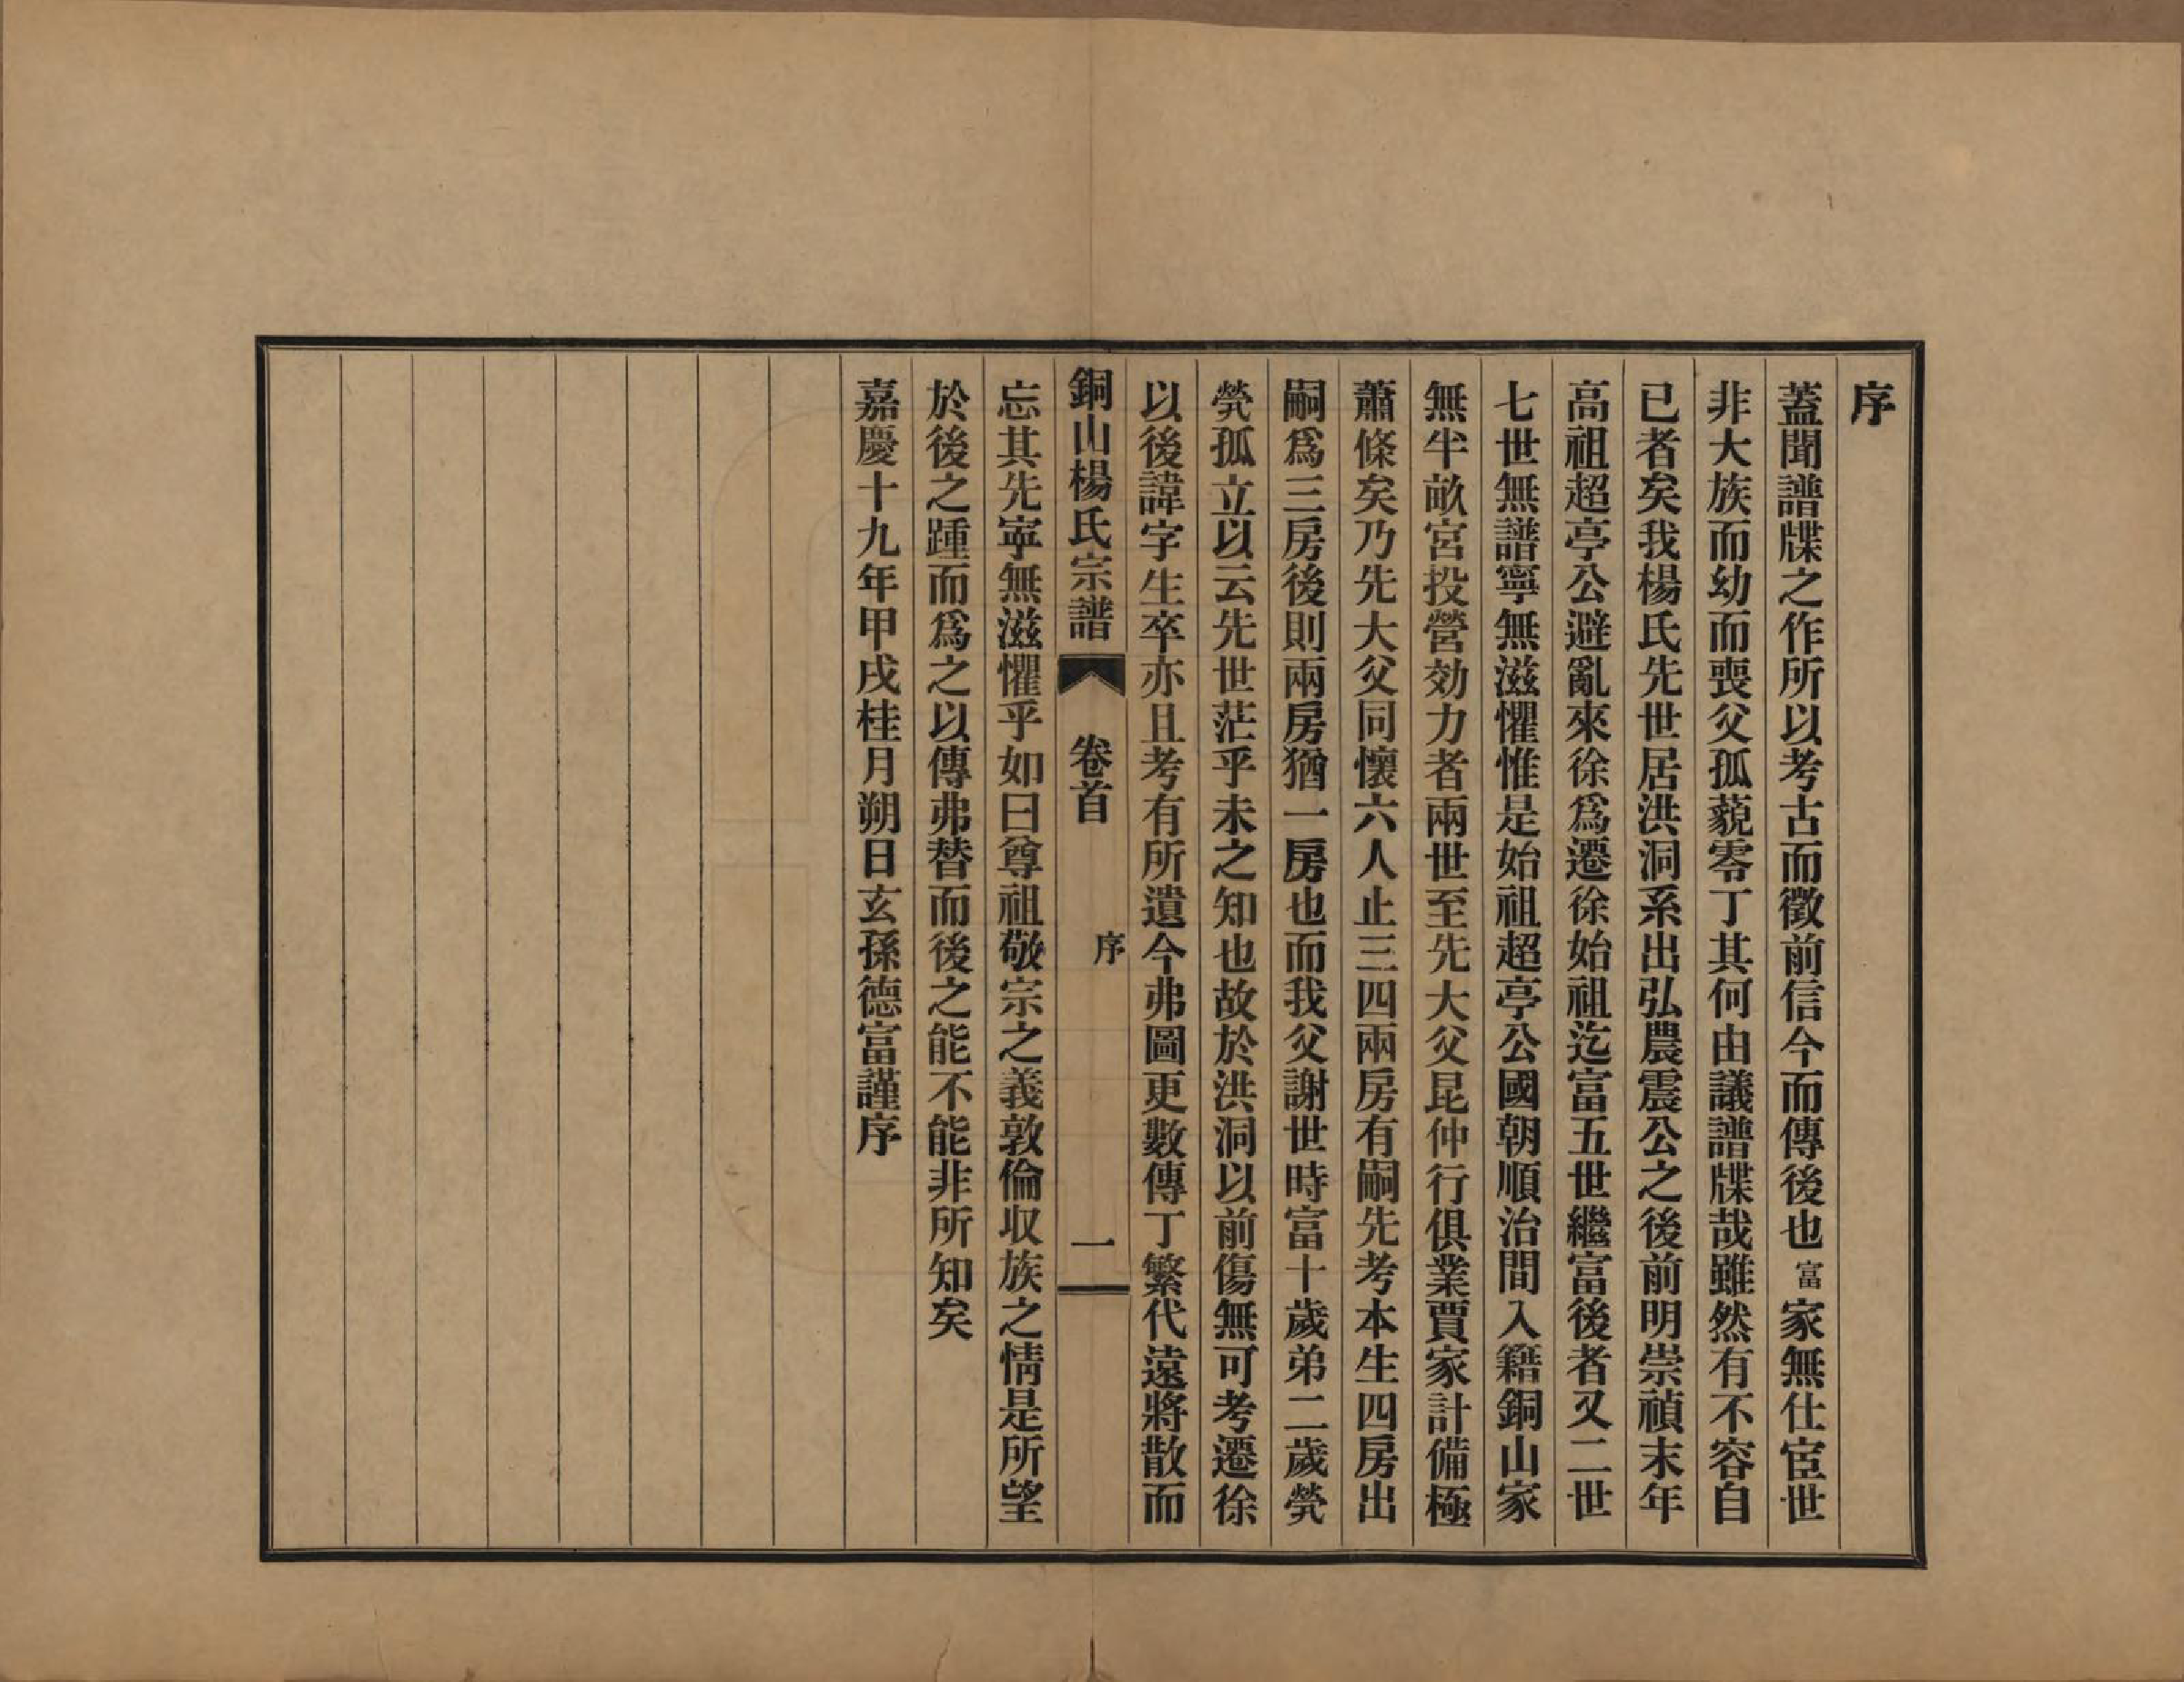 序
蓋聞譜牒之作所以考古而徵前信今而傳後也富家無仕宦世
非大族而幼而喪父孤藐零丁其何由議譜牒哉雖然有不容自
已者矣我楊氏先世居洪洞系出弘農震公之後前明崇禎末年
高祖超亭公避亂來徐爲遷徐始祖迄富五世繼富後者又二世
七世無譜寧無滋懼惟是始祖超亭公國朝順治間入籍銅山家
無半畝宮投營効力者兩世至先大父昆仲行俱業賈家計備極
蕭條矣乃先大父同懷六人止三四兩房有嗣先考本生四房出
嗣爲三房後則兩房猶一房也而我父謝世時富十歲弟二歲煢
煢孤立以云先世茫乎未之知也故於洪洞以前傷無可考遷徐
以後諱字生卒亦且考有所遺今弗圖更數傳丁繁代遠將散而
銅山楊氏宗譜 卷首 序 一
忘其先寧無滋懼乎如曰尊祖敬宗之義敦倫収族之情是所望
於後之踵而爲之以傳弗替而後之能不能非所知矣
嘉慶十九年甲戌桂月朔日玄孫德富謹序